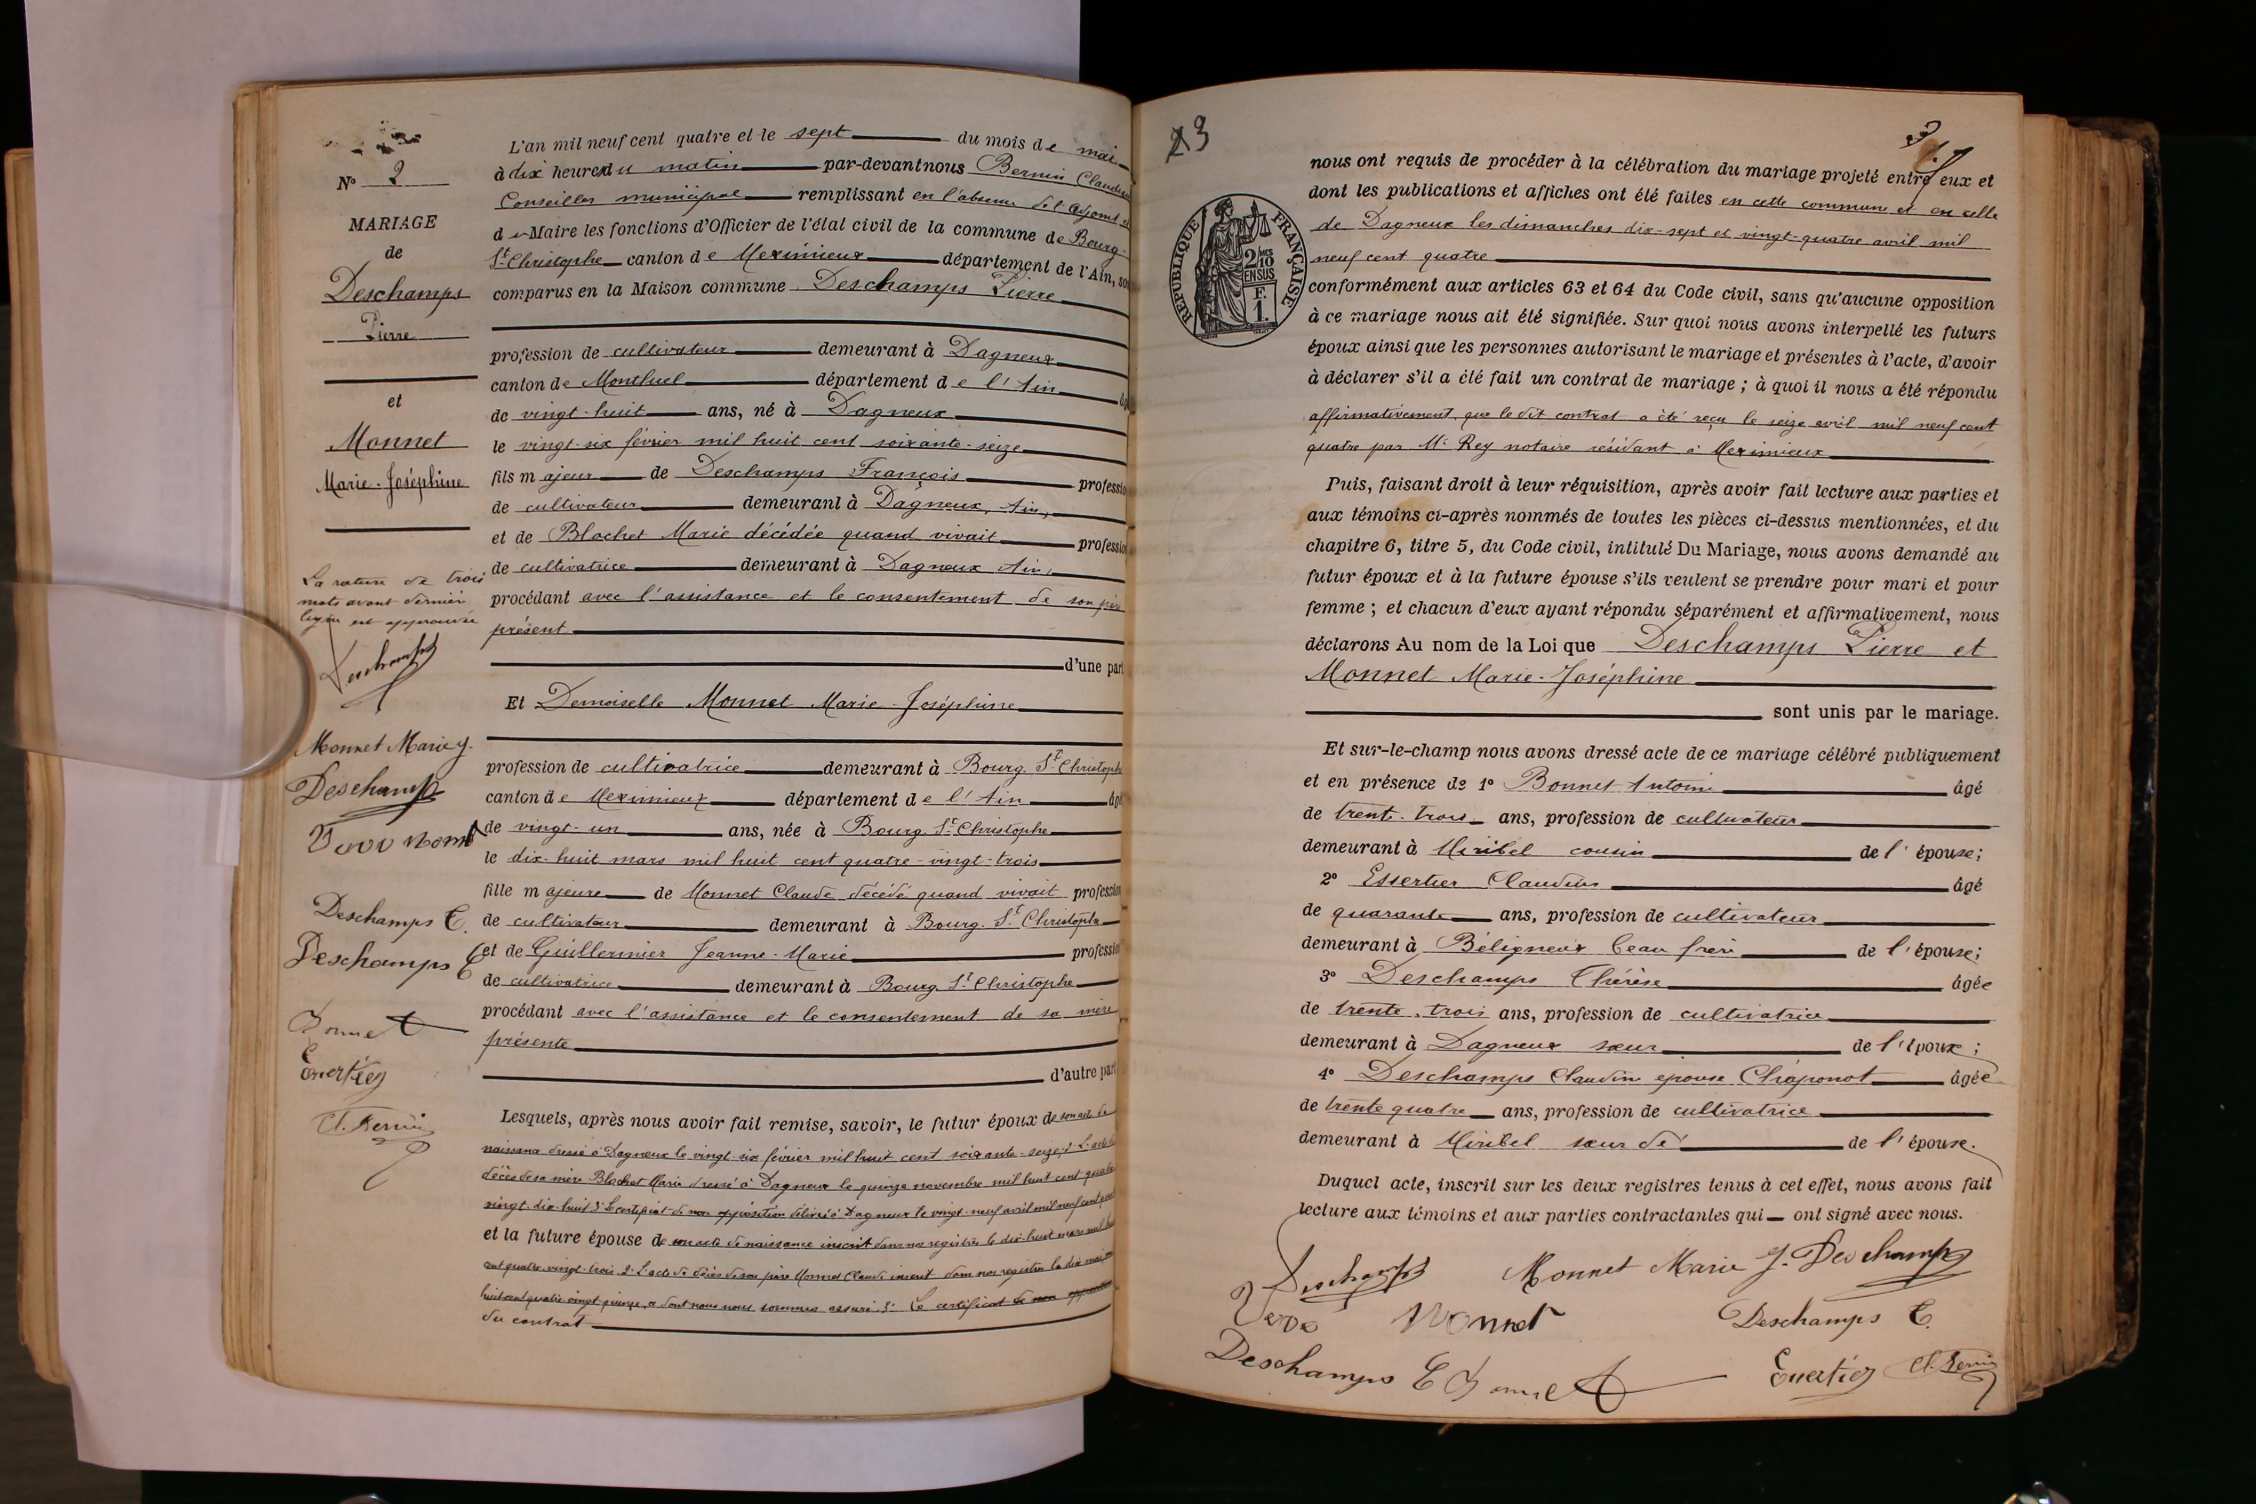 N° 2
MARIAGE
de
Deschamps
Pierre
et
Monnet
Marie-Joséphine
La rature de trois
mots avant dernière
ligne est approuvée
Deschamps
Monnet Marie J.
Deschamps
Deschamps C.
Deschamps C
Bonnet
Essertier
Cl. Bernin
L'an mil neuf cent quatre et le sept du mois de mai
à dix heures du matin par-devant nous Bernin Claudius
Conseiller municipal remplissant en l'absence de l'adjoint et
de Maire les fonctions d'Officier de l'état civil de la commune de Bourg-
St-Christophe canton de Meximieux département de l'Ain, so
comparus en la Maison commune Deschamps Pierre
profession de cultivateur demeurant à Dagneux
canton de Montluel département de l'Ain âg
de vingt-huit ans, né à Dagneux
le vingt-six février mil huit cent soixante-seize
fils majeur de Deschamps François professio
de cultivateur demeurant à Dagneux, Ain,
et de Blochet Marie décédée quand vivait profession
de cultivatrice demeurant à Dagneux Ain,
procédant avec l'assistance et le consentement de son père
présent
d'une part
Et Demoiselle Monnet Marie-Joséphine
profession de cultivatrice demeurant à Bourg-St-Christophe
canton de Meximieux département de l'Ain âgé
de vingt-un ans, née à Bourg-St-Christophe
le dix-huit mars mil huit cent quatre-vingt-trois
fille majeure de Monnet Claude décédé quand vivait profession
de cultivateur demeurant à Bourg-St-Christophe
et de Guillermier Jeanne-Marie profession
de cultivatrice demeurant à Bourg-St-Christophe
procédant avec l'assistance et le consentement de sa mère
présente
d'autre part
Lesquels, après nous avoir fait remise, savoir, le futur époux de son acte de
naissance dressé à Dagneux le vingt-six février mil huit cent soixante-seize 2° L'acte de
décès de sa mère Blochet Marie dressé à Dagneux le quinze novembre mil huit cent quatre
vingt-dix-huit 3° Le certificat de non opposition délivré à Dagneux le vingt-neuf avril mil neuf cent quatre
et la future épouse de son acte de naissance inscrit dans nos registres le dix-huit mars mil huit
cent quatre-vingt-trois 2° L'acte de décès de son père Monnet Claude inscrit dans nos registres le dix mai mil
huit cent quatre-vingt quinze, dont nous nous sommes assuré 3° Le certificat de non opposition
du contrat
23
RÉPUBLIQUE FRANÇAISE
2/10 EN SUS
F. 1.
nous ont requis de procéder à la célébration du mariage projeté entre eux et
dont les publications et affiches ont été faites en cette commune et en celle
de Dagneux les dimanches dix-sept et vingt-quatre avril mil
neuf cent quatre
conformément aux articles 63 et 64 du Code civil, sans qu'aucune opposition
à ce mariage nous ait été signifiée. Sur quoi nous avons interpellé les futurs
époux ainsi que les personnes autorisant le mariage et présentes à l'acte, d'avoir
à déclarer s'il a été fait un contrat de mariage ; à quoi il nous a été répondu
affirmativement, que le dit contrat a été reçu le seize avril mil neuf cent
quatre par Me Rey notaire résidant à Meximieux
Puis, faisant droit à leur réquisition, après avoir fait lecture aux parties et
aux témoins ci-après nommés de toutes les pièces ci-dessus mentionnées, et du
chapitre 6, titre 5, du Code civil, intitulé Du Mariage, nous avons demandé au
futur époux et à la future épouse s'ils veulent se prendre pour mari et pour
femme ; et chacun d'eux ayant répondu séparément et affirmativement, nous
déclarons Au nom de la Loi que Deschamps Pierre et
Monnet Marie-Joséphine
sont unis par le mariage.
Et sur-le-champ nous avons dressé acte de ce mariage célébré publiquement
et en présence de 1° Bonnet Antoine âgé
de trente-trois ans, profession de cultivateur
demeurant à Miribel cousin de l'épouse;
2° Essertier Claudius âgé
de quarante ans, profession de cultivateur
demeurant à Béligneux beau frère de l'épouse;
3° Deschamps Thérèse âgée
de trente-trois ans, profession de cultivatrice
demeurant à Dagneux sœur de l'époux ;
4° Deschamps Claudine épouse Chaponot âgée
de trente quatre ans, profession de cultivatrice
demeurant à Miribel sœur de de l'épouse.
Duquel acte, inscrit sur les deux registres tenus à cet effet, nous avons fait
lecture aux témoins et aux parties contractantes qui ont signé avec nous.
Deschamps Monnet Marie J. Deschamps
Monnet Deschamps C.
Deschamps C Bonnet Essertier Cl. Bernin